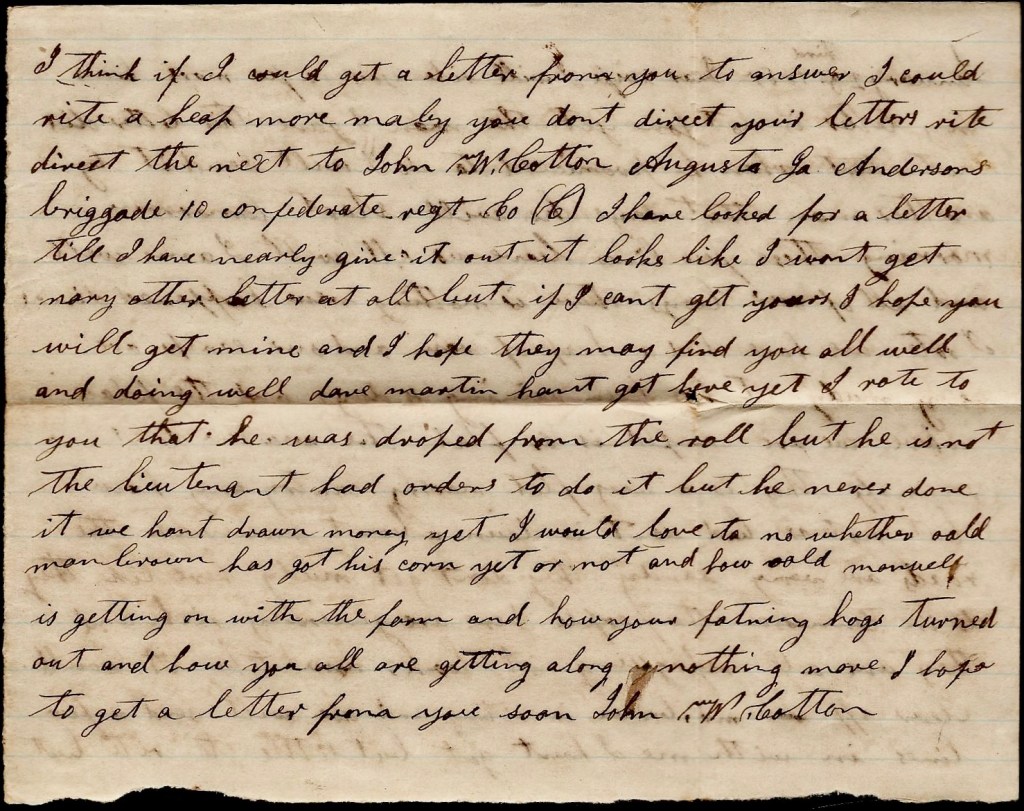 I think if I could get a letter from you to answer I could
rite a heap more maby you dont direct your letters rite
direct the next to John W. Cotton Augusta Ga Andersons
briggade 10 confederate regt Co (C) I have looked for a letter
till I have nearly give it out it looks like I wont get
nary other letter at all but if I cant get yours I hope you
will get mine and I hope they may find you all well
and doing well dave martin hant got here yet I rote to
you that he was droped from the roll but he is not
the lieutenant had orders to do it but he never done
it we hant drawn money yet I would love to no whether oald
man brown has got his corn yet or not and how oald manuel
is getting on with the farm and how your fatning hogs turned
out and how you all are getting along nothing more I hope
to get a letter from you soon John W. Cotton